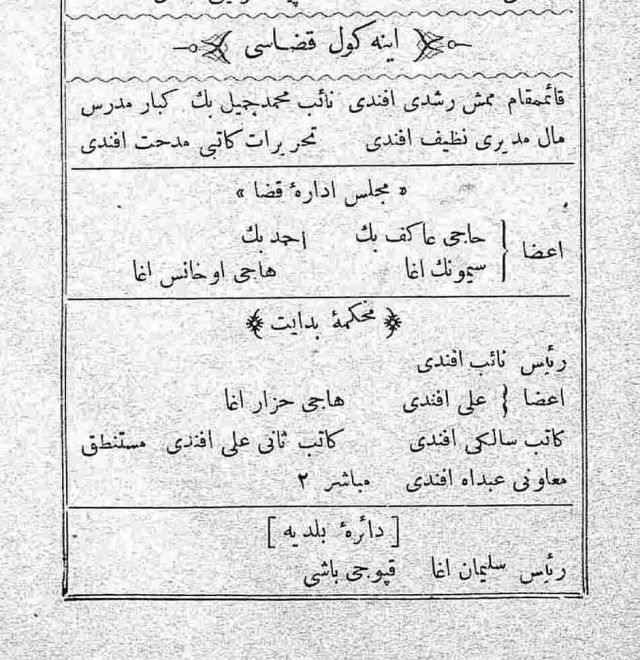 اینه كول قضاسی
قائممقام ممش رشدی افندی نائب محمدجمیل بك كبار مدرس
مال مدیری نظیف افندی تحریرات كاتبی مدحت افندی
« مجلس ادارۀ قضا »
اعضا { حاجی عاكف بك احمد بك
سیمونك اغا هاجی اوخانس اغا
محكمۀ بدایت
رئیس نائب افندی
اعضا { علی افندی هاجی حزار اغا
كاتب سالكی افندی كاتب ثانی علی افندی مستنطق
معاونی عبداه افندی مباشر ٢
[ دائرۀ بلدیه ]
رئیس سلیمان اغا قپوجی باشی